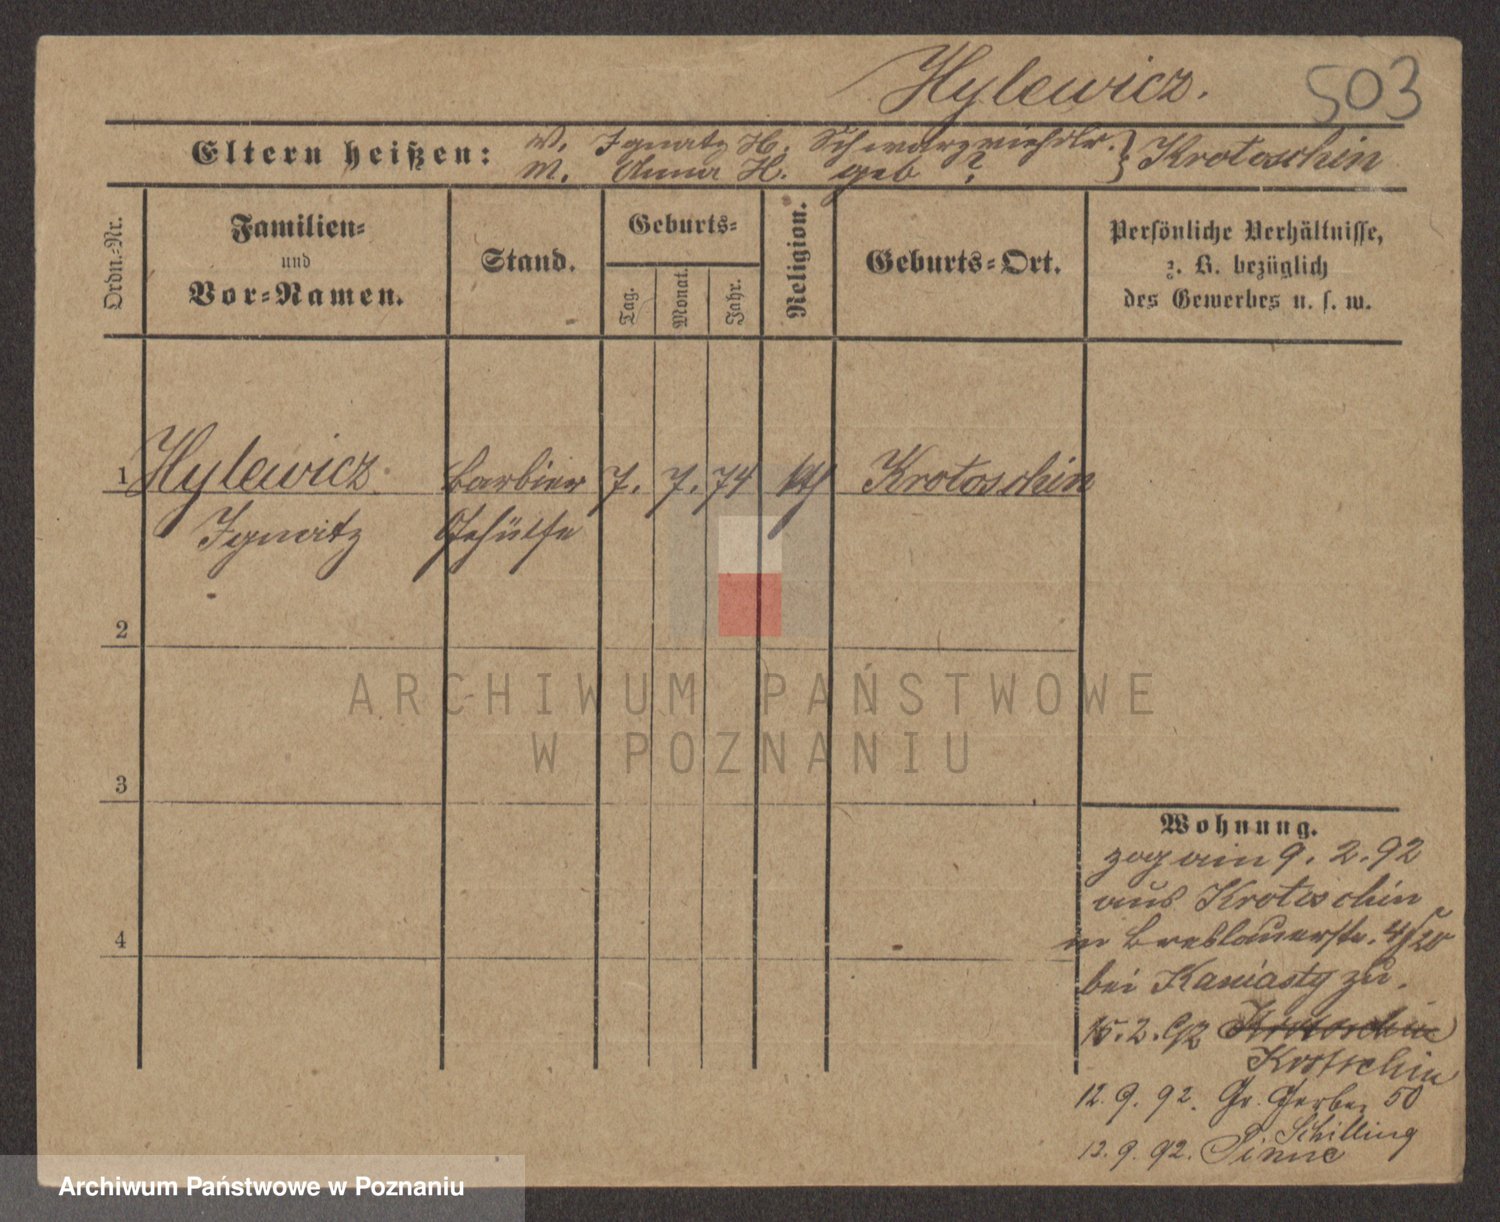 Hylewicz.
503
Eltern heißen:
V. Ignatz H. Schwarzviehdlr. } Krotoschin
M. Anna H. geb ?
Ordn.-Nr.
Familien-
und
Vor-Namen.
Stand.
Geburts-
Tag.
Monat.
Jahr.
Religion.
Geburts-Ort.
Persönliche Verhältnisse,
z. B. bezüglich
des Gewerbes u. s. w.
1 Hylewicz Barbier 7. 7. 74 Krotoschin
Ignatz Gehülfe
2
3
4
ARCHIWUM PAŃSTWOWE
W POZNANIU
Wohnung.
zog am 9. 2. 92
aus Krotoschin
in Breslauerstr.
bei Kaniasty zu.
15. 2. 92 Krotoschin
Krotoschin
12. 9. 92. Gr. Gerber 50
Schilling
12. 9. 92. Pinne
Archiwum Państwowe w Poznaniu